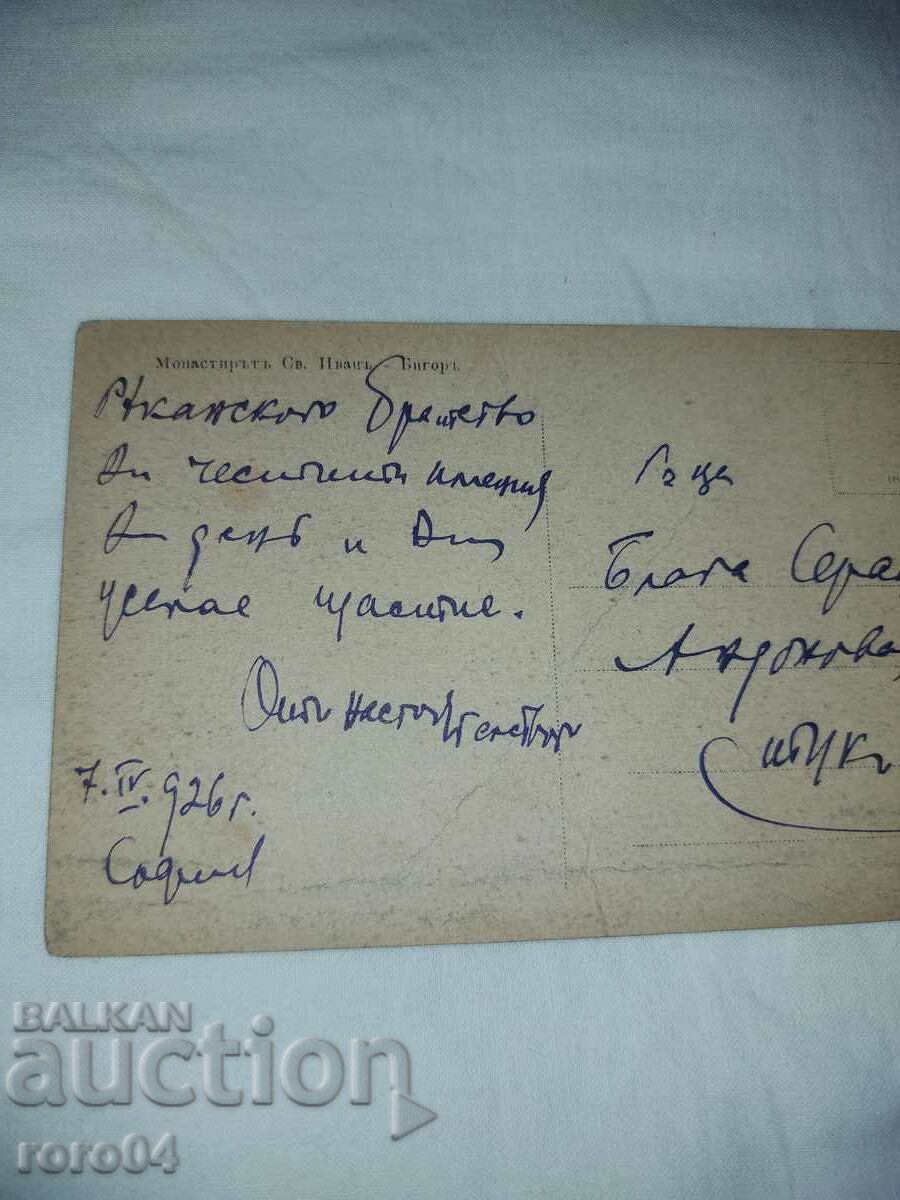 Монастирътъ Св. Иванъ - Бигоръ
Рѣканското братство
Ви честити имения
Ви день и Ви
щастие.
Отъ настоятелството
7.IV.926 г.
София
Г-ца
Блага
BALKAN
auction
roro04